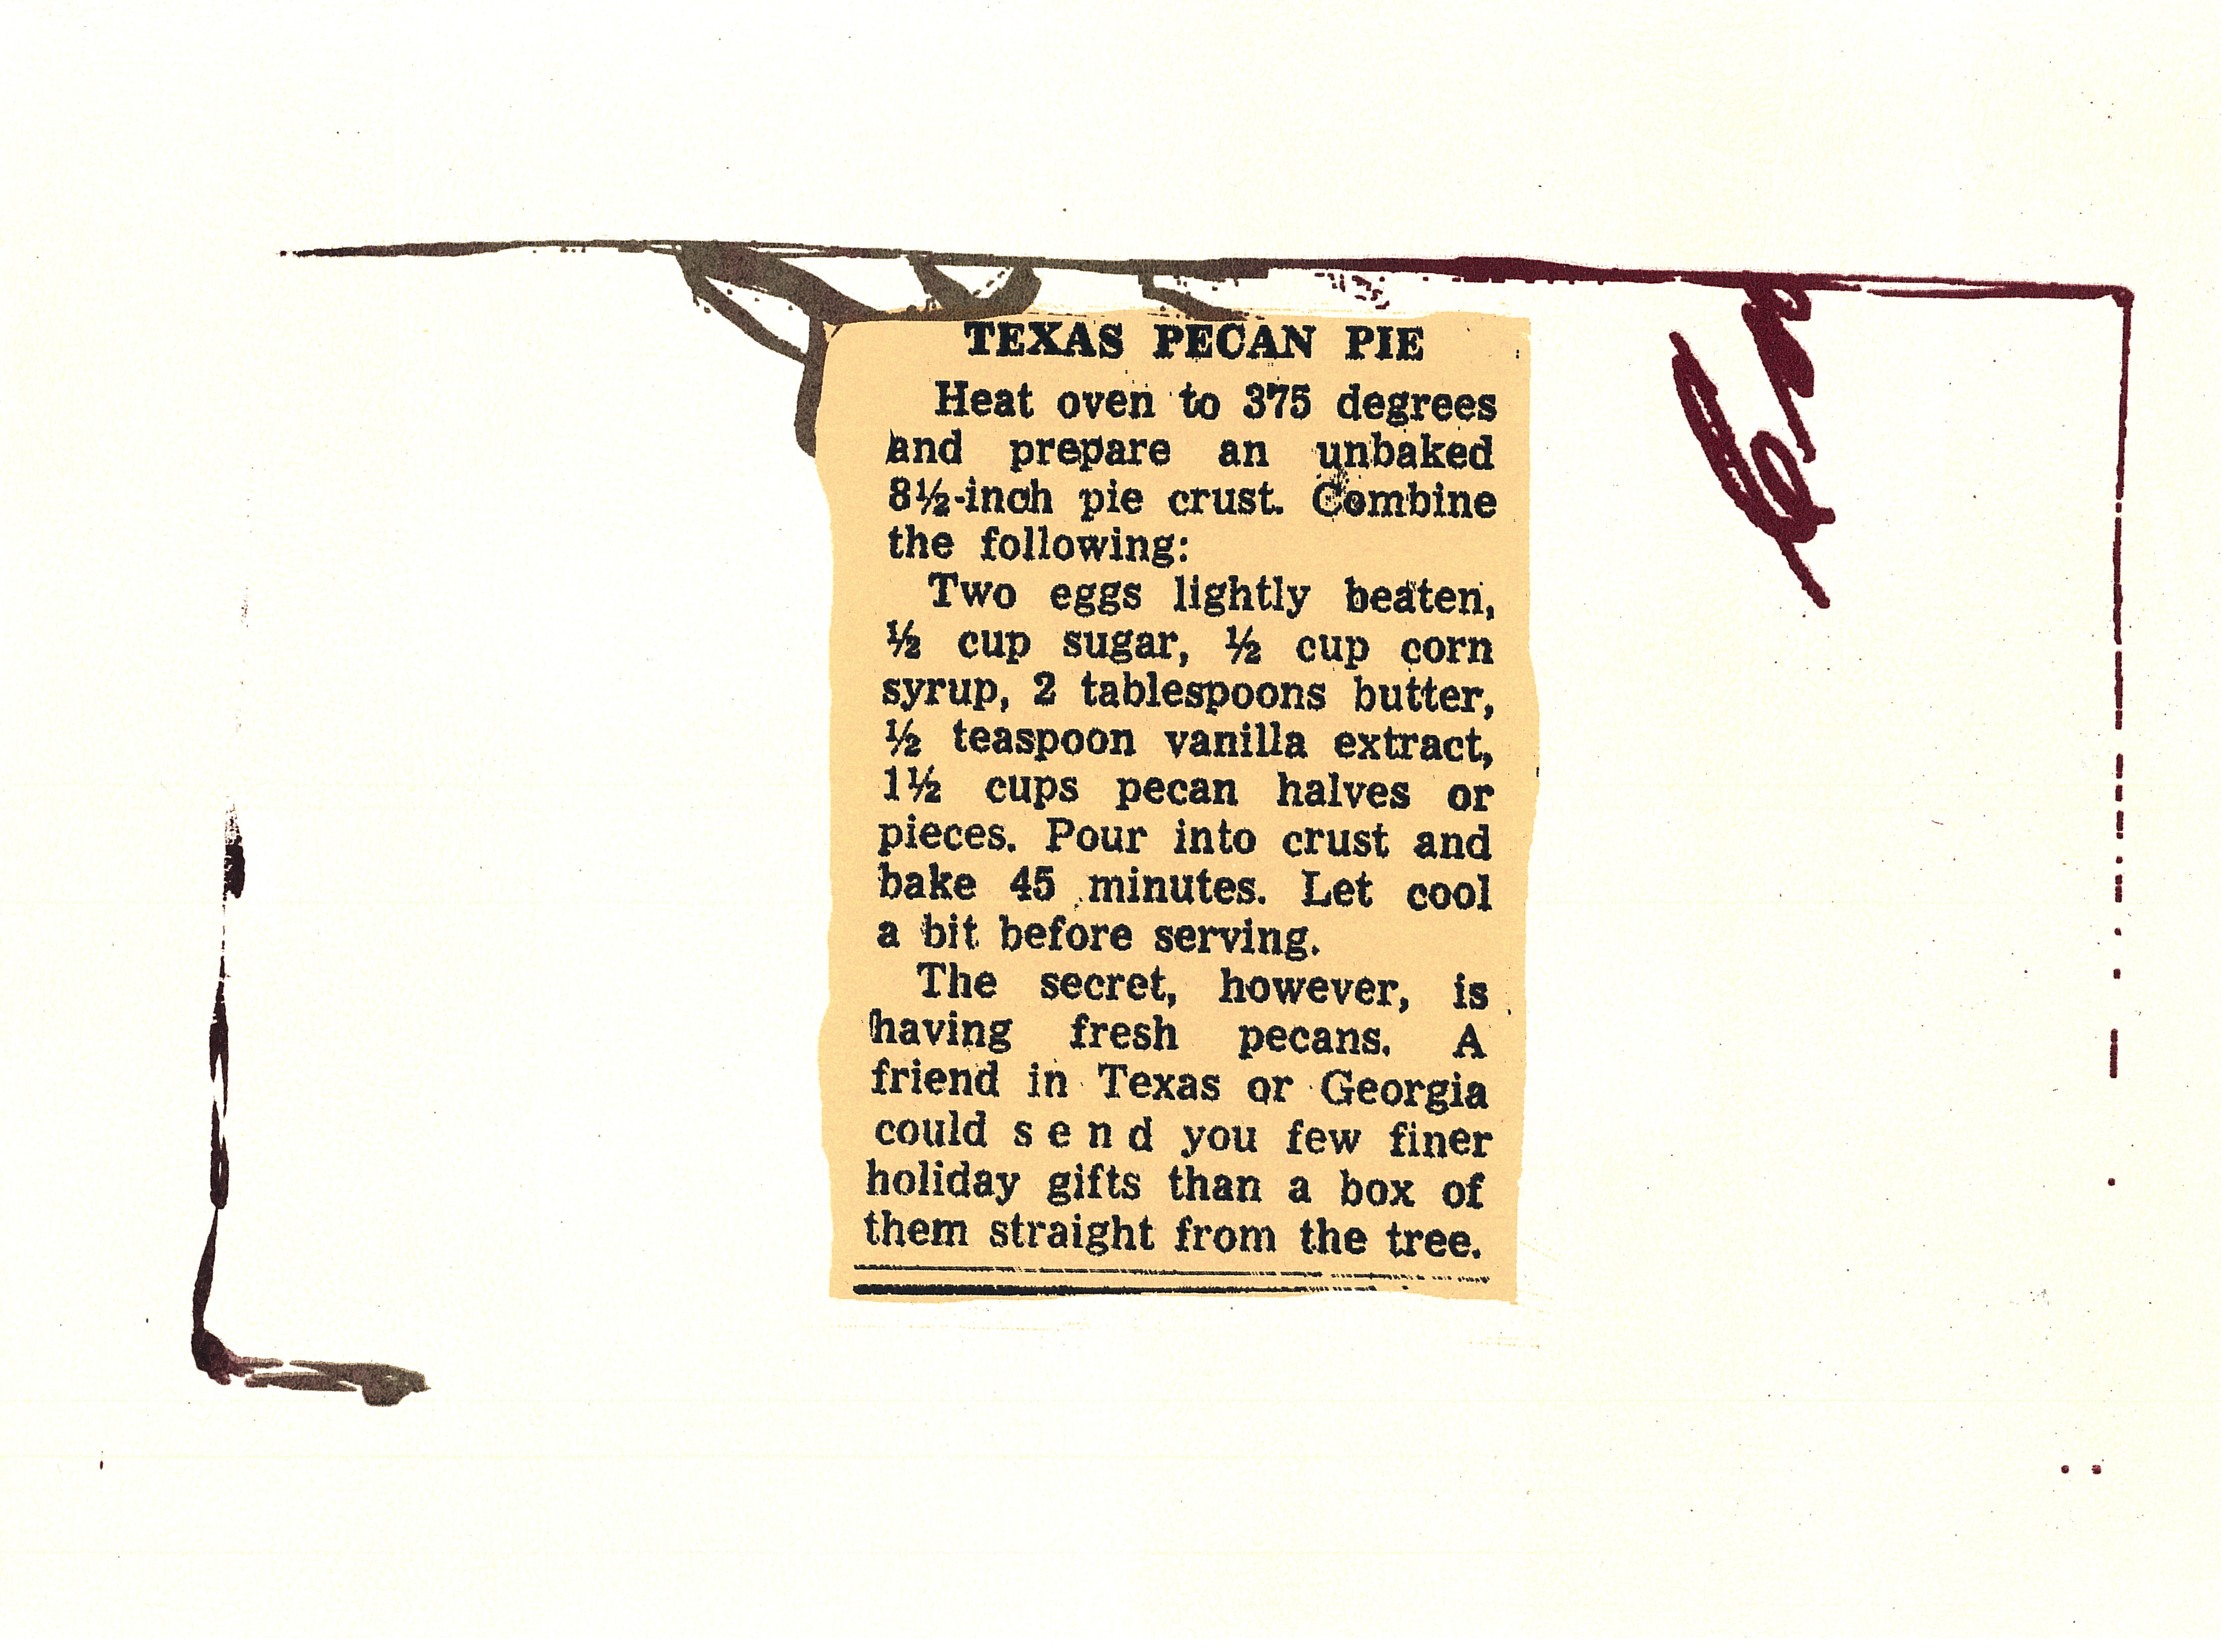 TEXAS PECAN PIE
Heat oven to 375 degrees
and prepare an unbaked
8½-inch pie crust. Combine
the following:
Two eggs lightly beaten,
½ cup sugar, ½ cup corn
syrup, 2 tablespoons butter,
½ teaspoon vanilla extract,
1½ cups pecan halves or
pieces. Pour into crust and
bake 45 minutes. Let cool
a bit before serving.
The secret, however, is
having fresh pecans. A
friend in Texas or Georgia
could send you few finer
holiday gifts than a box of
them straight from the tree.